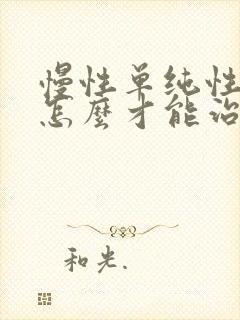 慢性单纯性
怎麽才能治
和光.